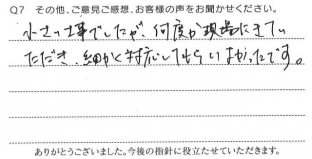 Q7 その他、ご意見ご感想、お客様の声をお聞かせください。
小さい工事でしたが、何度か現場にきてい
ただき、細かく対応してもらいよかったです。
ありがとうございました。今後の指針に役立たせていただきます。